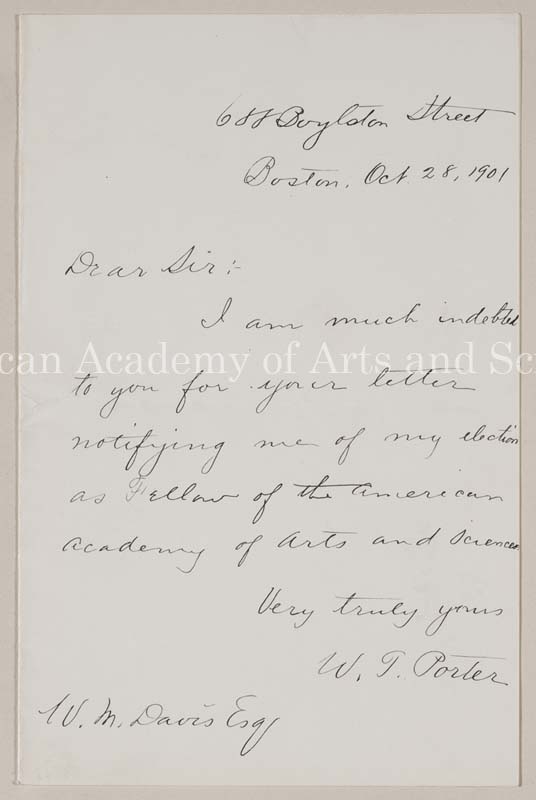 688 Boylston Street
Boston, Oct 28, 1901
Dear Sir:-
I am much indebted
can Academy of Arts and Sci
to you for your letter
notifying me of my election
as Fellow of the American
Academy of Arts and Sciences
Very truly yours
W. T. Porter
W. M. Davis Esq